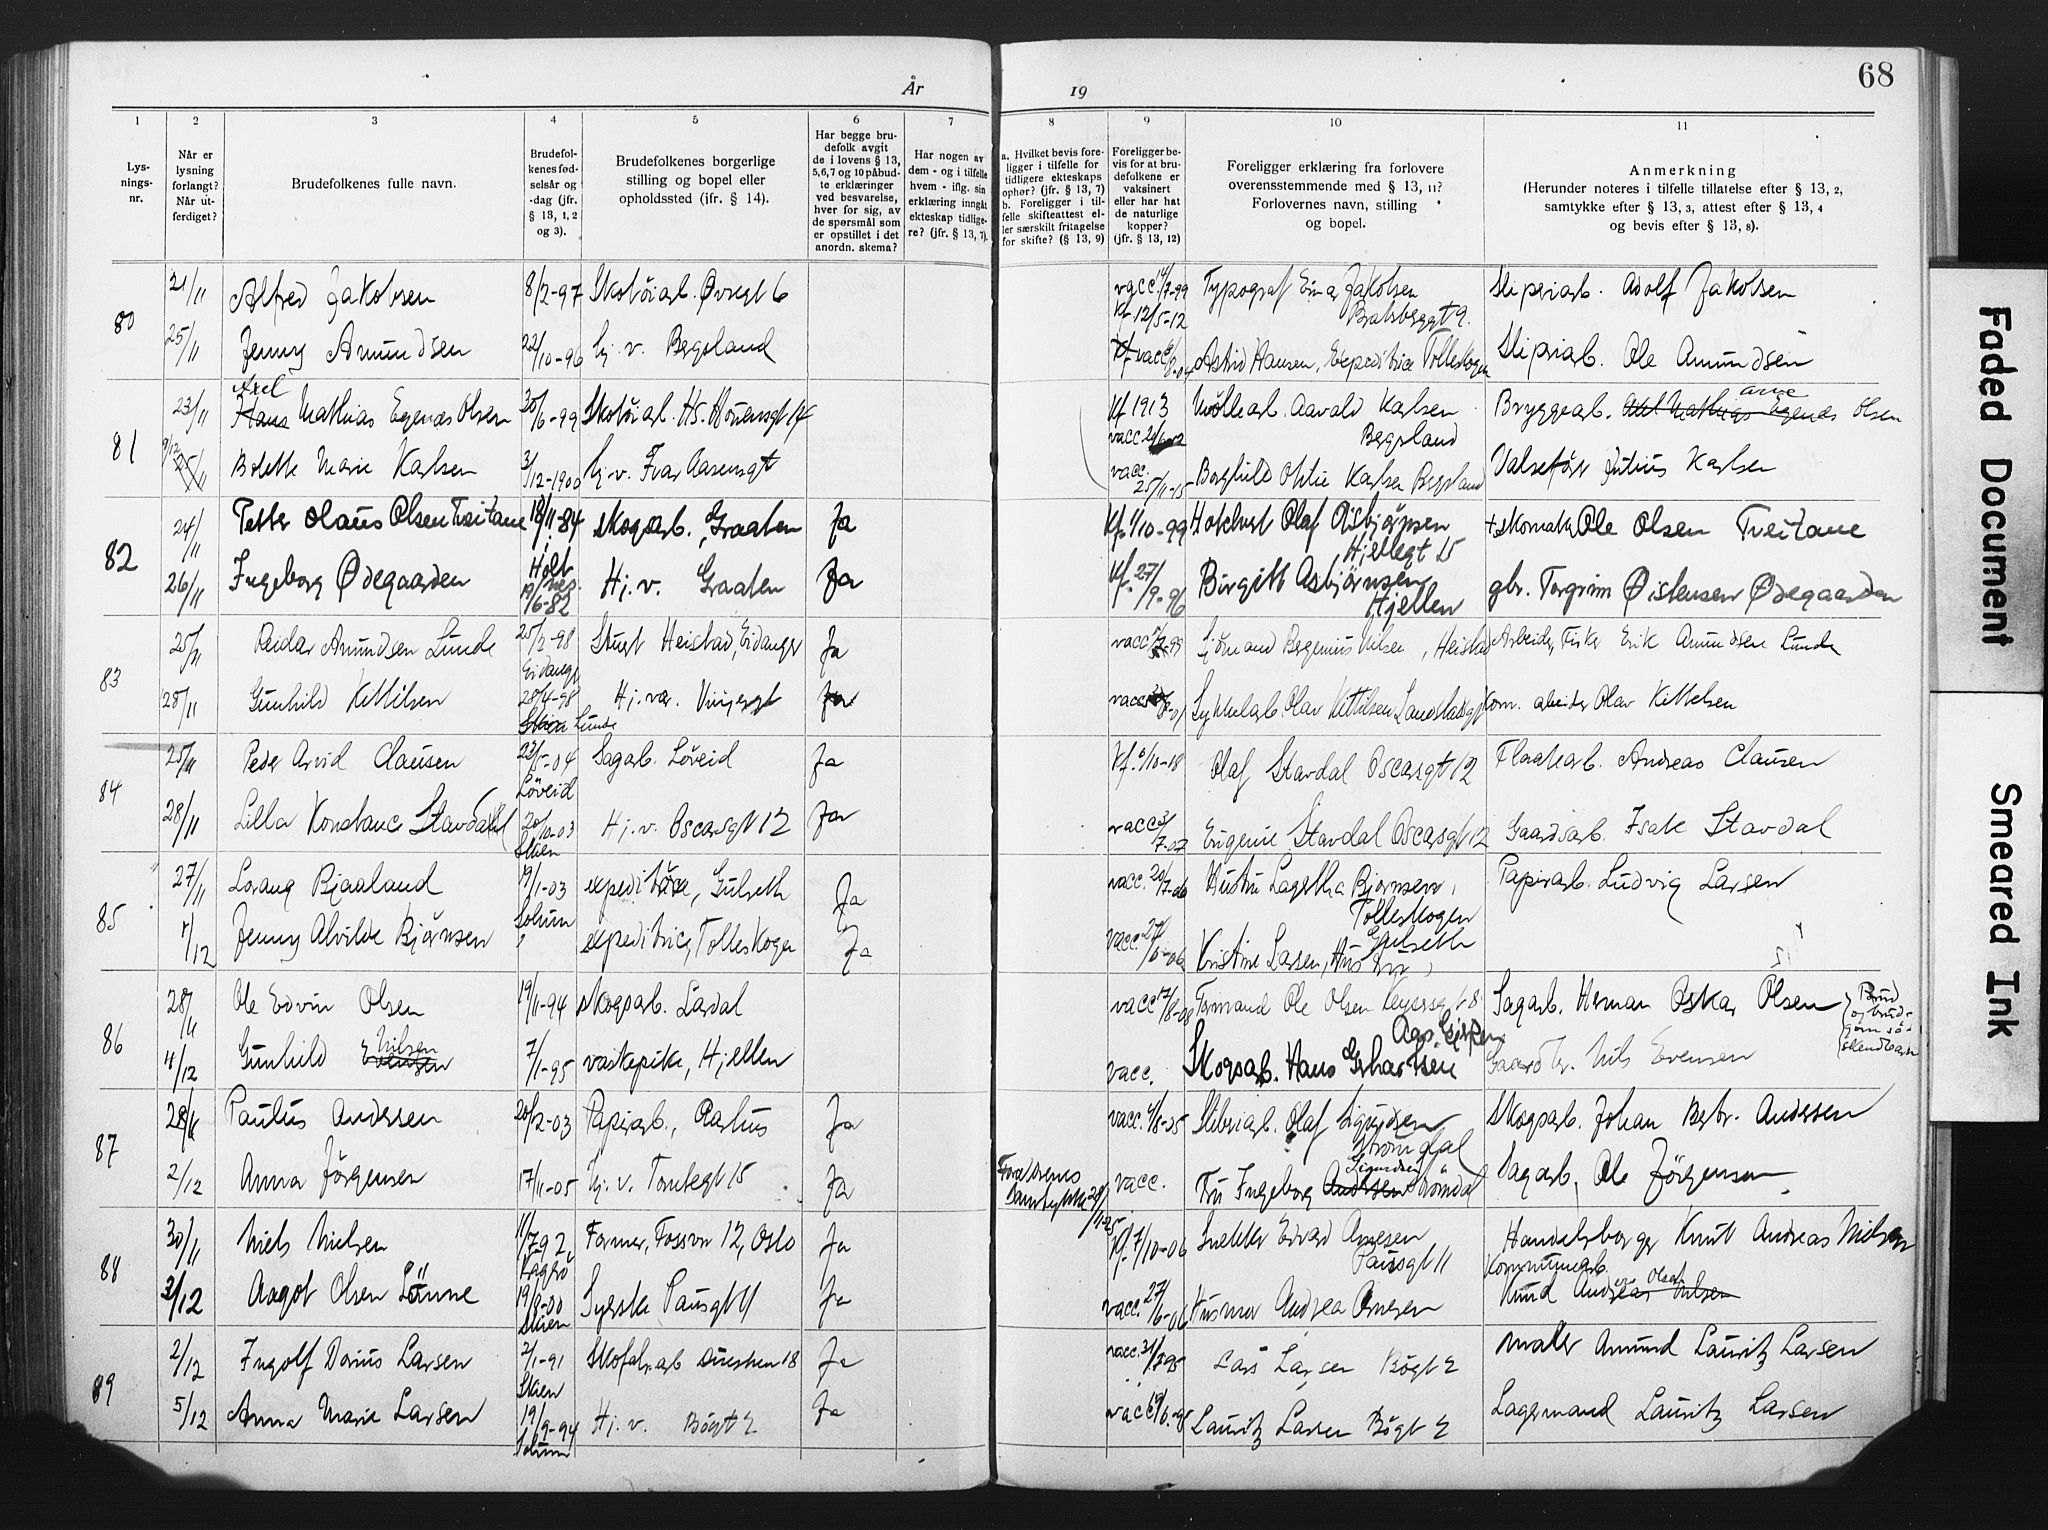 År
19
68
Faded Document
Smeared Ink
1
2
3
4
5
6
7
8
9
10
11
Lys-
nings-
nr.
Når er
lysning
forlangt?
Når ut-
ferdiget?
Brudefolkenes fulle navn.
Brudefol-
kenes fød-
selsår og
-dag (jfr.
§ 13, 1, 2
og 3).
Brudefolkenes borgerlige
stilling og bopel eller
opholdssted (jfr. § 14).
Har begge bru-
defolk avgit
de i lovens § 13,
5,6,7 og 10 påbud-
te erklæringer
ved besvarelse,
hver for sig, av
de spørsmål som
er opstillet i det
anordn. skema?
Har nogen av
dem - og i tilfelle
hvem - iflg. sin
erklæring inngåt
ekteskap tidlige-
re? (jfr. § 13, 7).
a. Hvilket bevis fore-
ligger i tilfelle for
tidligere ekteskaps
ophør? (jfr. § 13, 7)
b. Foreligger i til-
felle skifteattest el-
ler særskilt fritagelse
for skifte? (§ 13, 9)
Foreligger be-
vis for at bru-
defolkene er
vaksinert
eller har hat
de naturlige
kopper?
(jfr. § 13, 12)
Foreligger erklæring fra forlovere
overensstemmende med § 13, 11?
Forlovernes navn, stilling
og bopel.
Anmerkning
(Herunder noteres i tilfelle tillatelse efter § 13, 2,
samtykke efter § 13, 3, attest efter § 13, 4
og bevis efter § 13, 8).
80
21/11 Alfred Jakobsen 8/2-97 Skotöiarb. Övregt 6 vacc. 14/7-99 Typograf Einar Jakobsen Sliperiarb. Adolf Jakobsen
Kf. 12/5-12 Bratsberggt 9.
25/11 Jenny Amundsen 22/10-96 hj. v. Bergsland Astrid Hansen, Expeditrice Tolleskogen Sliperiarb. Ole Amundsen
81
Axel
23/11 Hans Mathias Egenæs Olsen 30/6-99 Skotöiarb. HS. Hövensgt 14 Kf 1913 Möllearb. Aavald Karlsen Bryggearb. Egenæs Olsen
Arne
Bergsland
9/12 25/11 Bolette Marie Karlsen 3/12-1900 hj. v. Ivar Aasensgt vacc. 25/11-15 Borghild Otilie Karlsen Bergsland Valsefører Julius Karlsen
82
24/11 Petter Olaus Olsen Tveitane 18/11-84 Skogsarb., Graaten Ja Kf. 1/10-99 Hotelvert Olaf Asbjörnsen + skomaker Ole Olsen Tveitane
Holt Hjellegt 15
26/11 Ingeborg Ödegaarden 19/6-82 Hj. v. Graaten Ja Kf. 27/9-96 Birgitte Asbjörnsen gbr. Torgrim Östensen Ödegaarden
Hjellen
83
25/11 Reidar Amundsen Lunde 25/2-98 Heistad, Eidanger Ja vacc. Sjömand Bergenius Nilsen, Heistad Arbeider, Fisker Erik Amundsen Lunde
Eidanger
28/11 Gunhild Kittilsen 28/4-98 Hj. vær. Ja vacc. Sykkelarb. Olav Kittilsen, Landstadsgt Kom. arbeider Olav Kittelsen
Lunde
84
25/11 Peder Arvid Clausen 23/5-04 Sagarb. Löveid Ja Kf. 6/10-18 Olaf Stavdal Oscarsgt 12 Flaatearb. Andreas Clausen
Löveid
28/11 Lilla Konstance Stavdahl 20/10-03 Hj. v. Oscarsgt 12 Ja vacc. 3/7-07 Eugenie Stavdal Oscarsgt 12 Gaardsarb. Isak Stavdal
Skien
85
27/11 Lorang Bjaaland 19/1-03 expeditör, Gulseth Ja vacc. 20/7-06 Hustru Lagertha Bjørnsen, Papirarb. Ludvig Larsen
Solum Tolleskogen
1/12 Jenny Alvilde Bjørnsen expeditrice, Tolleskogen Ja vacc. 27/6-06 Kristine Larsen, Hustru, Gulseth
86
28/11 Ole Edvin Olsen 19/11-94 skogsarb. Lardal vacc. 12/8-08 Formand Ole Olsen Keysersgt 8 Sagarb. Herman Oskar Olsen Brud
og brud-
gom sö-
skendebarn
4/12 Gunhild Nilsen Evensen 7/1-95 vaskepike, Hjellen vacc. Skogsarb. Hans Gerhardsen Gaardbr. Nils Evensen
87
28/11 Paulus Andersen 20/2-03 Papirarb., Aarhus Ja vacc. 4/8-25 Sliberiarb. Olaf Sigurdsen Skogsarb. Johan Andersen
Strömdal
2/12 Anna Jörgensen 17/11-05 hj. v. Tomtegt 15 Ja Foreldrenes
Samtykke vacc. Fru Ingeborg Andersen Sigurdsen Strömdal Sagarb. Ole Jörgensen
88
30/11 Niels Nielsen 11/7 92 Former, Fossvn 12, Oslo Ja Kf. 7/10-06 Snekker Edvard Arnesen Handelsborger Knut Andreas Nielsen
Pausgt 11 Kommunearb.
3/12 Aagot Olsen Lönne 19/9-00 Syerske Pausgt 11 Ja vacc. 27/6-06 Husmor Andrea Arnesen Knud Andreas Nilsen
Skien
89
2/12 Ingolf Darius Larsen 2/1-91 Skofabr.arb Ja vacc. Lars Larsen Bögt 2 maler Amund Lauritz Larsen
Skien
5/12 Anna Marie Larsen 19/9-94 Hj. v. Bögt 2 Ja vacc. Lauritz Larsen Bögt 2 Lagermand Lauritz Larsen
Solum